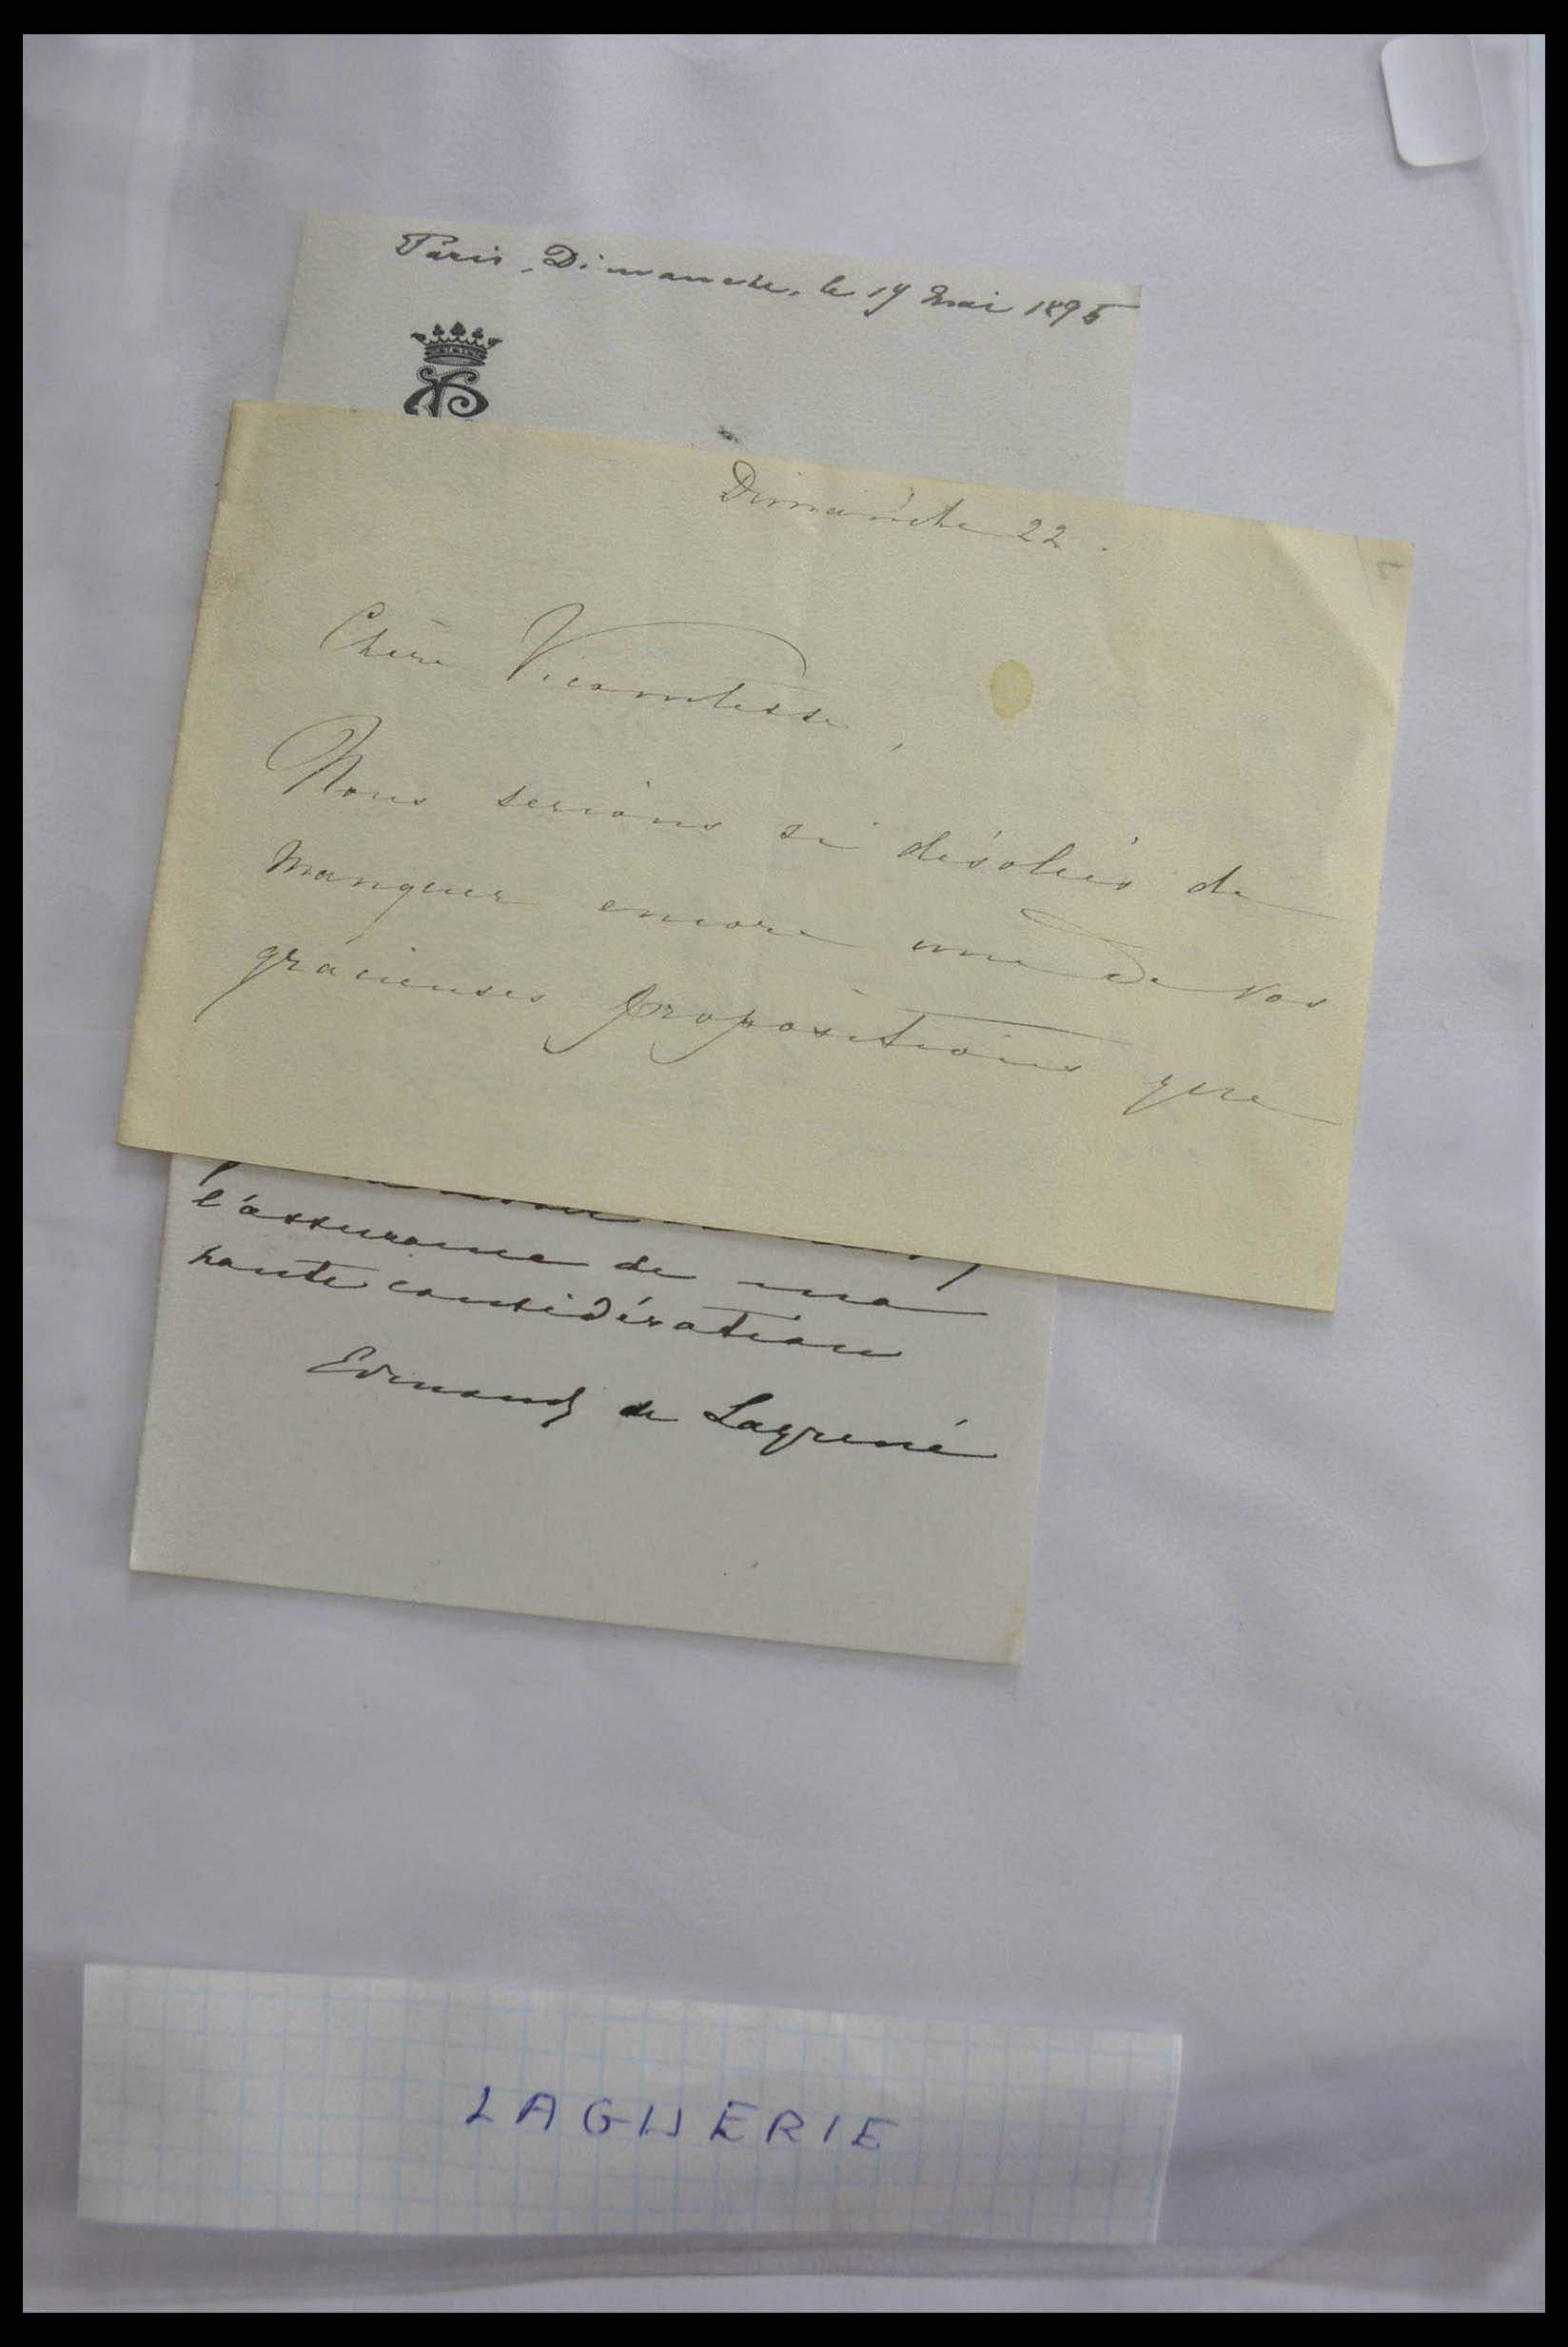 Paris, Dimanche, le 19 Mai 1895
Dimanche 22.
Chère Vicomtesse,
Nous serions si désolées de
manquer encore une de vos
gracieuses propositions que
l'assurance de ma
haute considération
Edmond de Lagrené
LAGUERIE